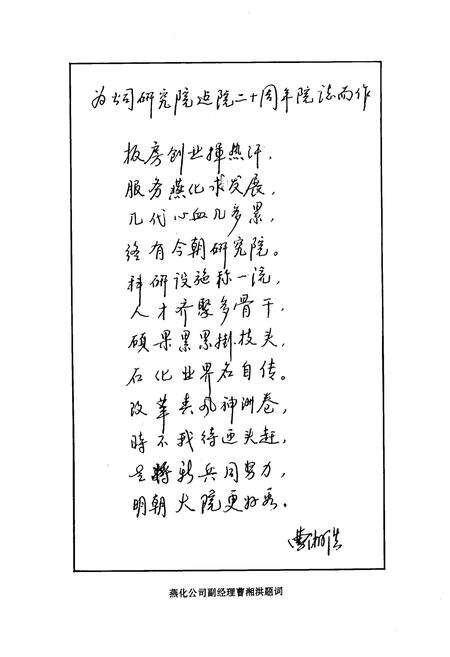 为公司研究院建院二十周年院誌而作
板房创业挥热汗，
服务燕化求发展，
几代心血几多累，
终有今朝研究院。
科研设施称一流，
人才齐聚多骨干，
硕果累累掛枝头，
石化业界名自传。
改革春风神洲卷，
時不我待迎头赶，
老将新兵同努力，
明朝大院更好看。
曹湘洪
燕化公司副经理曹湘洪题词